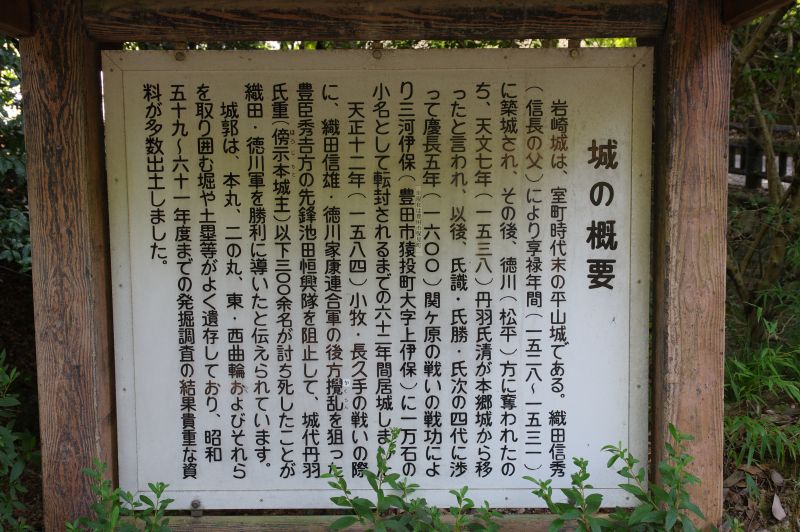 城の概要
岩崎城は、室町時代末の平山城である。織田信秀
（信長の父）により享禄年間（一五二八〜一五三一）
に築城され、その後、徳川（松平）方に奪われたの
ち、天文七年（一五三八）丹羽氏清が本郷城から移
ったと言われ、以後、氏識・氏勝・氏次の四代に渉
って慶長五年（一六〇〇）関ヶ原の戦いの戦功によ
り三河伊保（豊田市猿投町大字上伊保）に一万石の
小名として転封されるまでの六十二年間居城しま
天正十二年（一五八四）小牧・長久手の戦いの際
に、織田信雄・徳川家康連合軍の後方攪乱を狙った
豊臣秀吉方の先鋒池田恒興隊を阻止して、城代丹羽
氏重（傍示本城主）以下三〇〇余名が討ち死したことが
織田・徳川軍を勝利に導いたと伝えられています。
城郭は、本丸、二の丸、東・西曲輪およびそれら
を取り囲む堀や土塁等がよく遺存しており、昭和
五十九〜六十一年度までの発掘調査の結果貴重な資
料が多数出土しました。